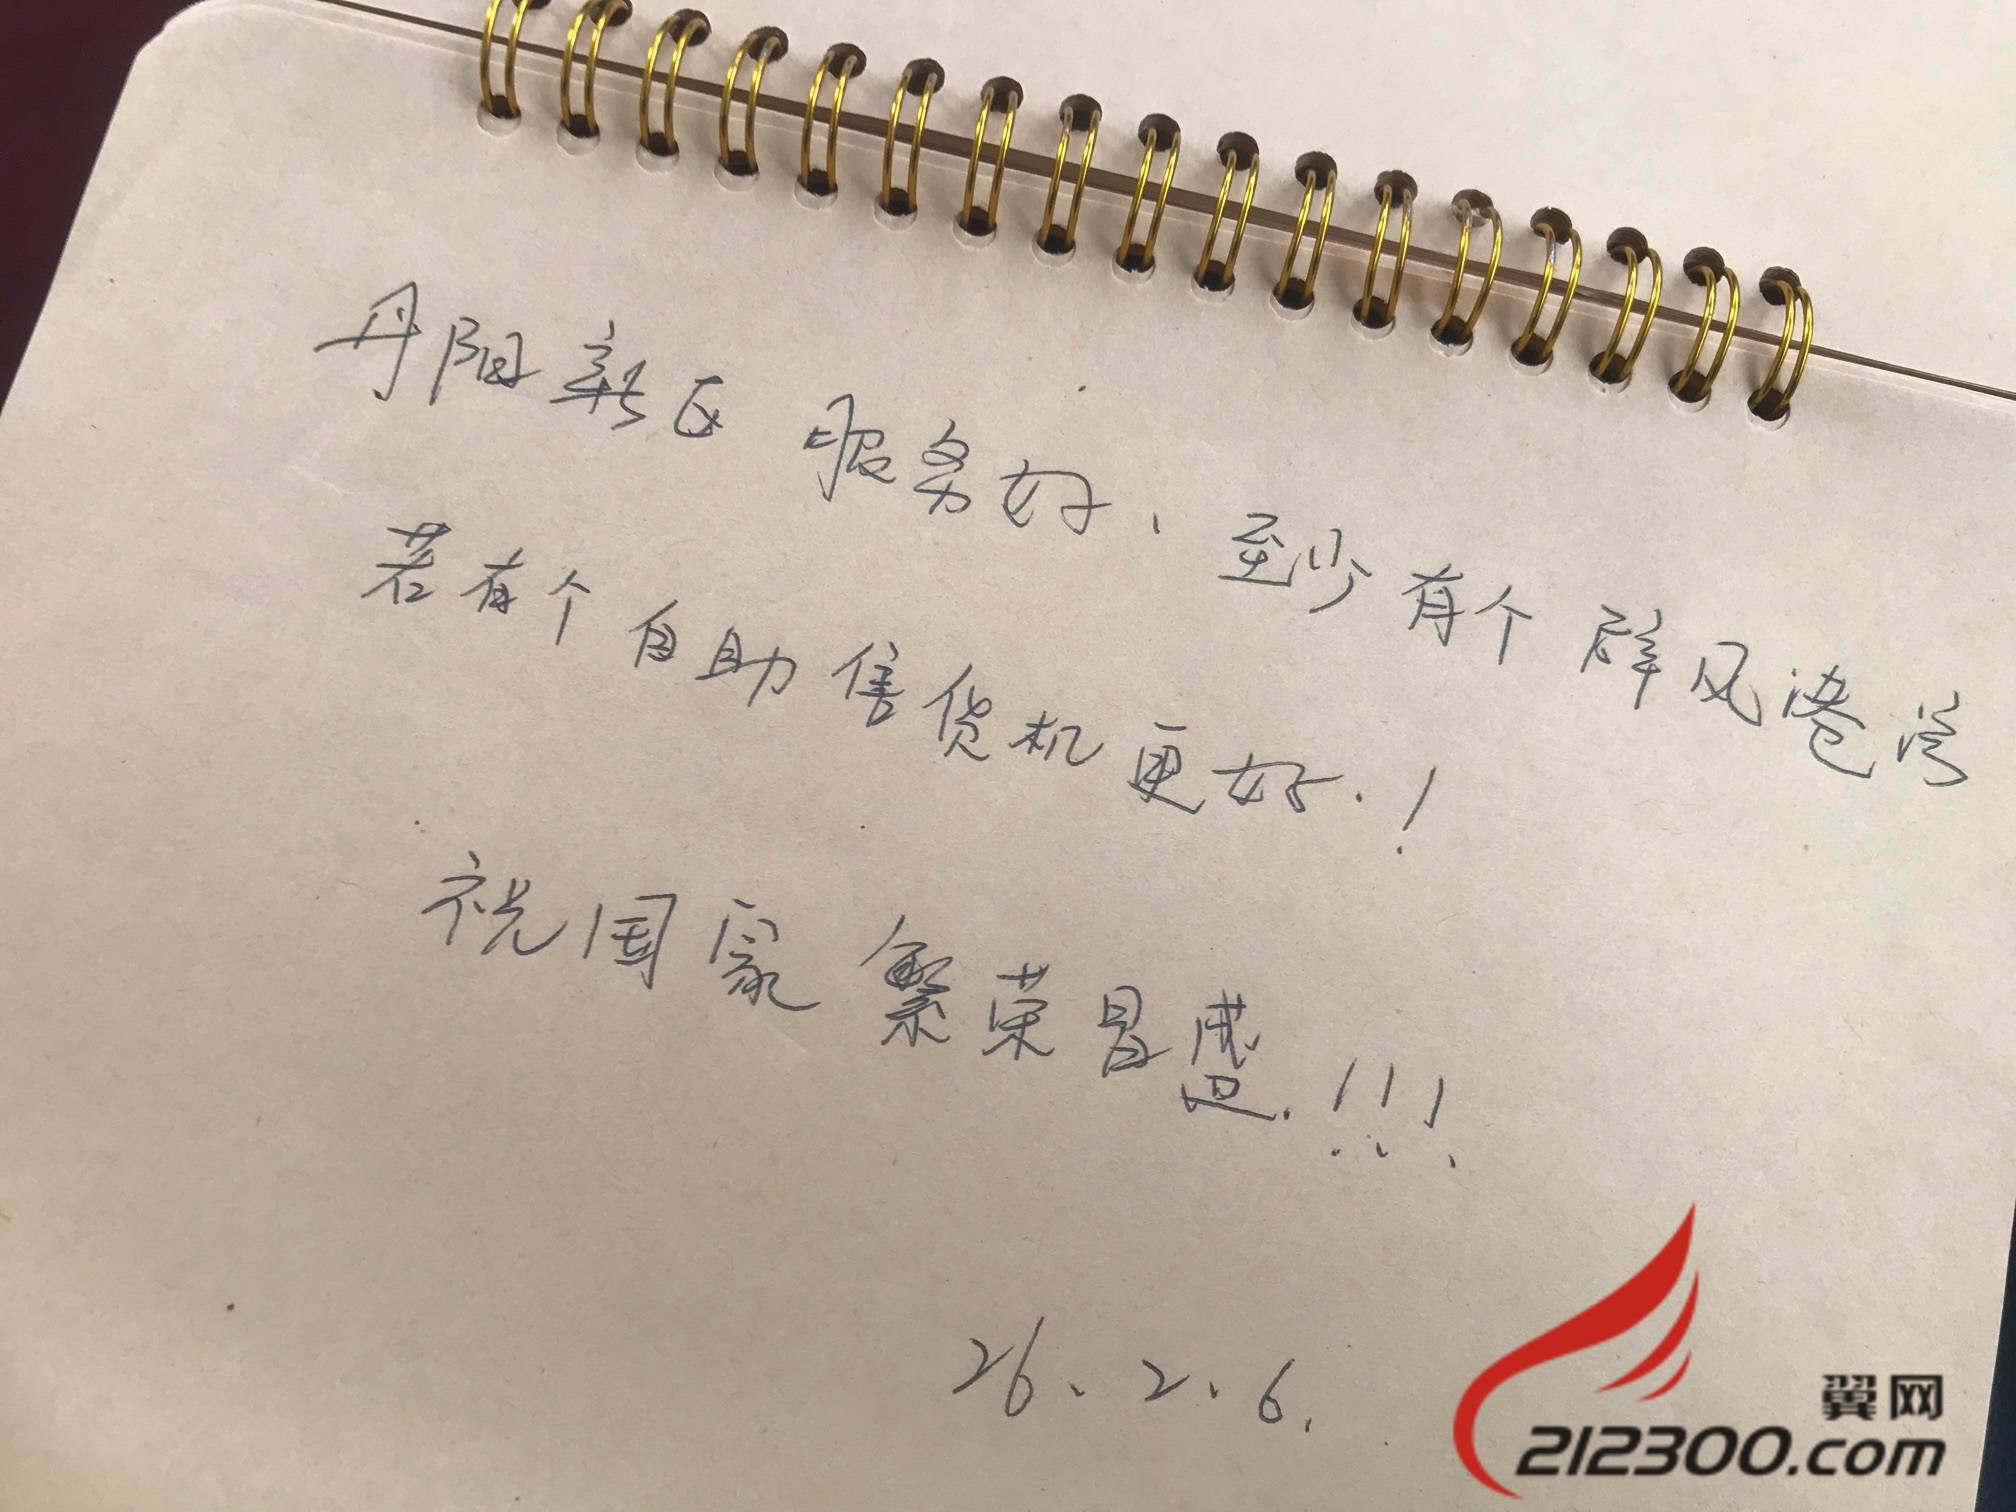 丹阳新区 服务好、至少有个 辟风港湾
若有个自助售货机更好.!
祝国家 繁荣昌盛.!!!
26、2、6.
翼网
212300.com